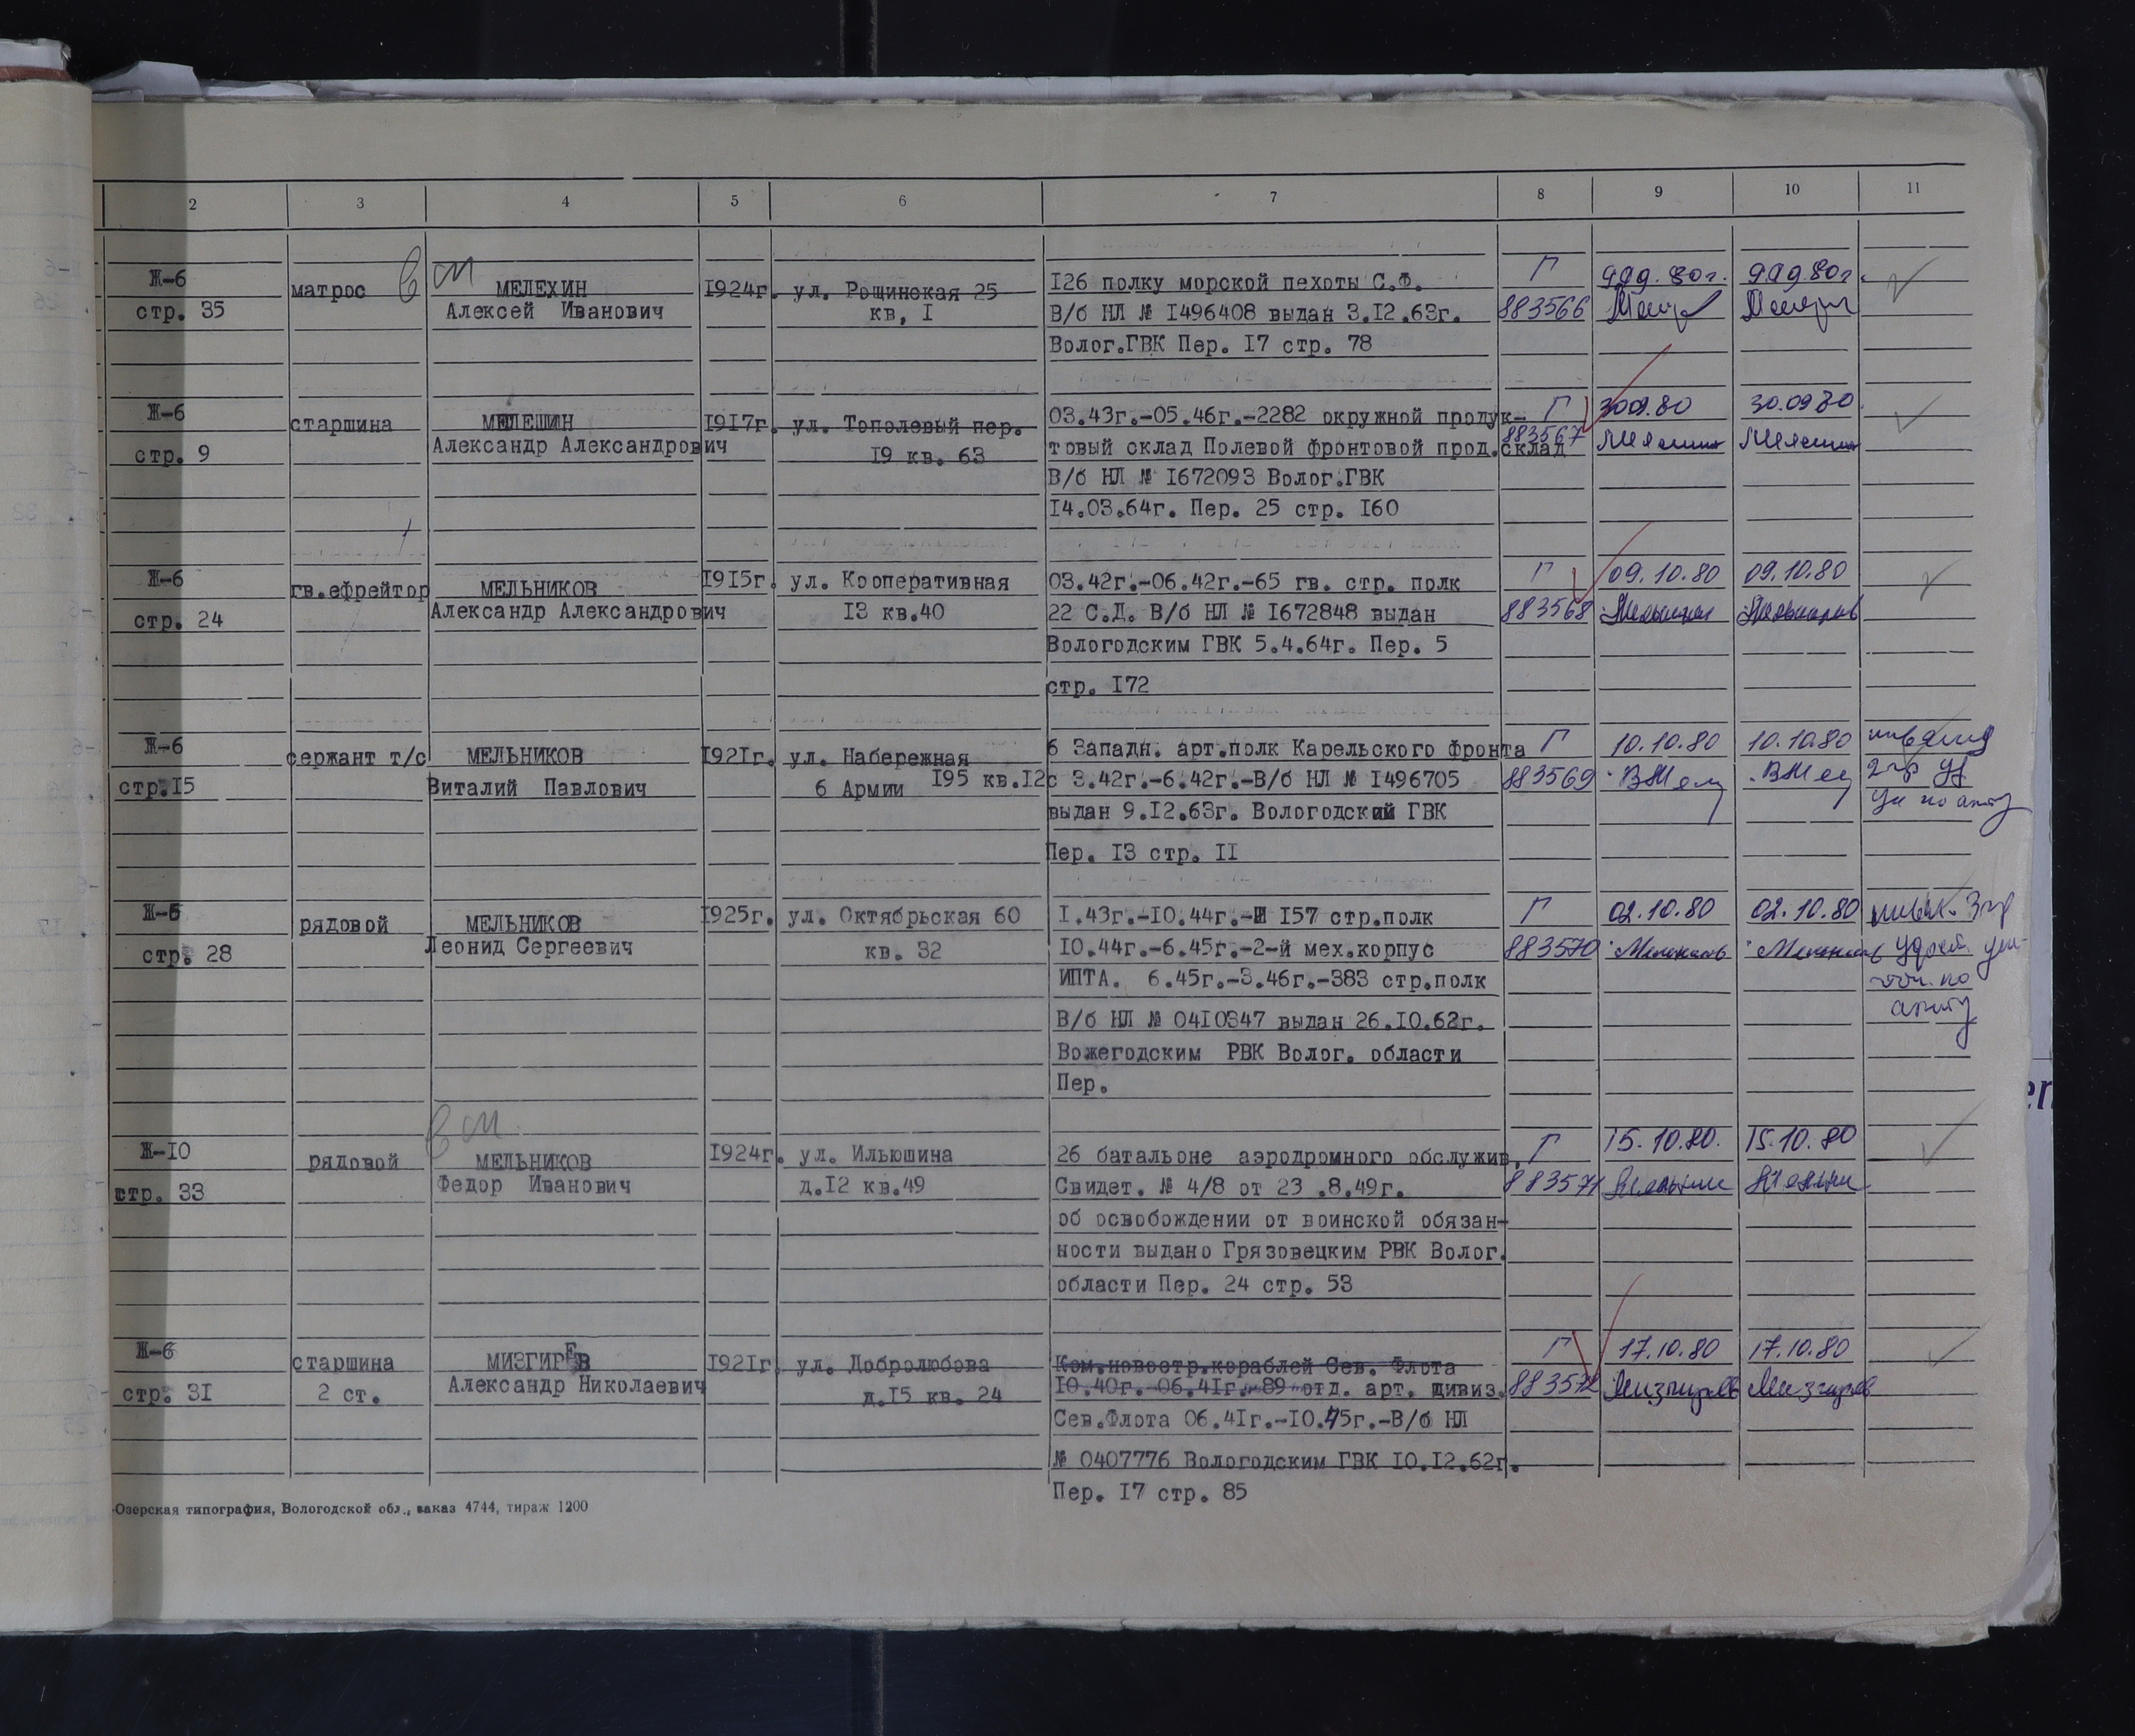 2 3 4 5 6 7 8 9 10 11
Ж-6 матрос МЕЛЕХИН 1924г. ул. Рощинская 25 126 полку морской пехоты С.Ф. Г
стр. 35 Алексей Иванович кв, I В/б НЛ № 1496408 выдан 3.12.63г. 883566
Волог.ГВК Пер. 17 стр. 78
Ж-6 старшина МЕЛЕШИН 1917г. ул. Тополевый пер. 03.43г.-05.46г.-2282 окружной продук- Г 30.09.80 30.09.80
стр. 9 Александр Александрович 19 кв. 63 товый склад Полевой фронтовой прод.склад 883567
В/б НЛ № 1672093 Волог.ГВК
14.03.64г. Пер. 25 стр. 160
Ж-6 гв.ефрейтор МЕЛЬНИКОВ 1915г. ул. Кооперативная 03.42г.-06.42г.-65 гв. стр. полк Г 09.10.80 09.10.80
стр. 24 Александр Александрович 13 кв.40 22 С.Д. В/б НЛ № 1672848 выдан 883568
Вологодским ГВК 5.4.64г. Пер. 5
стр. 172
Ж-6 сержант т/с МЕЛЬНИКОВ 1921г. ул. Набережная 6 Западн. арт.полк Карельского Фронта Г 10.10.80 10.10.80 инвалид
стр.15 Виталий Павлович 6 Армии 195 кв.12 с 3.42г.-6.42г.-В/б НЛ № 1496705 883569 2 гр
выдан 9.12.63г. Вологодский ГВК
Пер. 13 стр. II
Ж-6 рядовой МЕЛЬНИКОВ 1925г. ул. Октябрьская 60 1.43г.-10.44г.- 157 стр.полк Г 02.10.80 02.10.80 инвал. 3 гр
стр. 28 Леонид Сергеевич кв. 32 10.44г.-6.45г.-2-й мех.корпус 883570
ИПТА. 6.45г.-3.46г.-383 стр.полк
В/б НЛ № 0410347 выдан 26.10.62г.
Вожегодским РВК Волог. области
Пер.
Ж-10 рядовой МЕЛЬНИКОВ 1924г. ул. Ильюшина 26 батальоне аэродромного обслужив. Г 15.10.80. 15.10.80
стр. 33 Федор Иванович д.12 кв.49 Свидет. № 4/8 от 23 .8.49г. 883571
об освобождении от воинской обязан-
ности выдано Грязовецким РВК Волог.
области Пер. 24 стр. 53
Ж-6 старшина МИЗГИРЕВ 1921г. ул. Добролюбова Ком.новостр.кораблей Сев. Флота Г 17.10.80 17.10.80
стр. 31 2 ст. Александр Николаевич д.15 кв. 24 10.40г.-06.41г.-89 отд. арт. дивиз. 883572 Мизгирев Мизгирев
Сев.Флота 06.41г.-10.45г.-В/б НЛ
№ 0407776 Вологодским ГВК 10.12.62г.
Пер. 17 стр. 85
Озерская типография, Вологодской обл., заказ 4744, тираж 1200